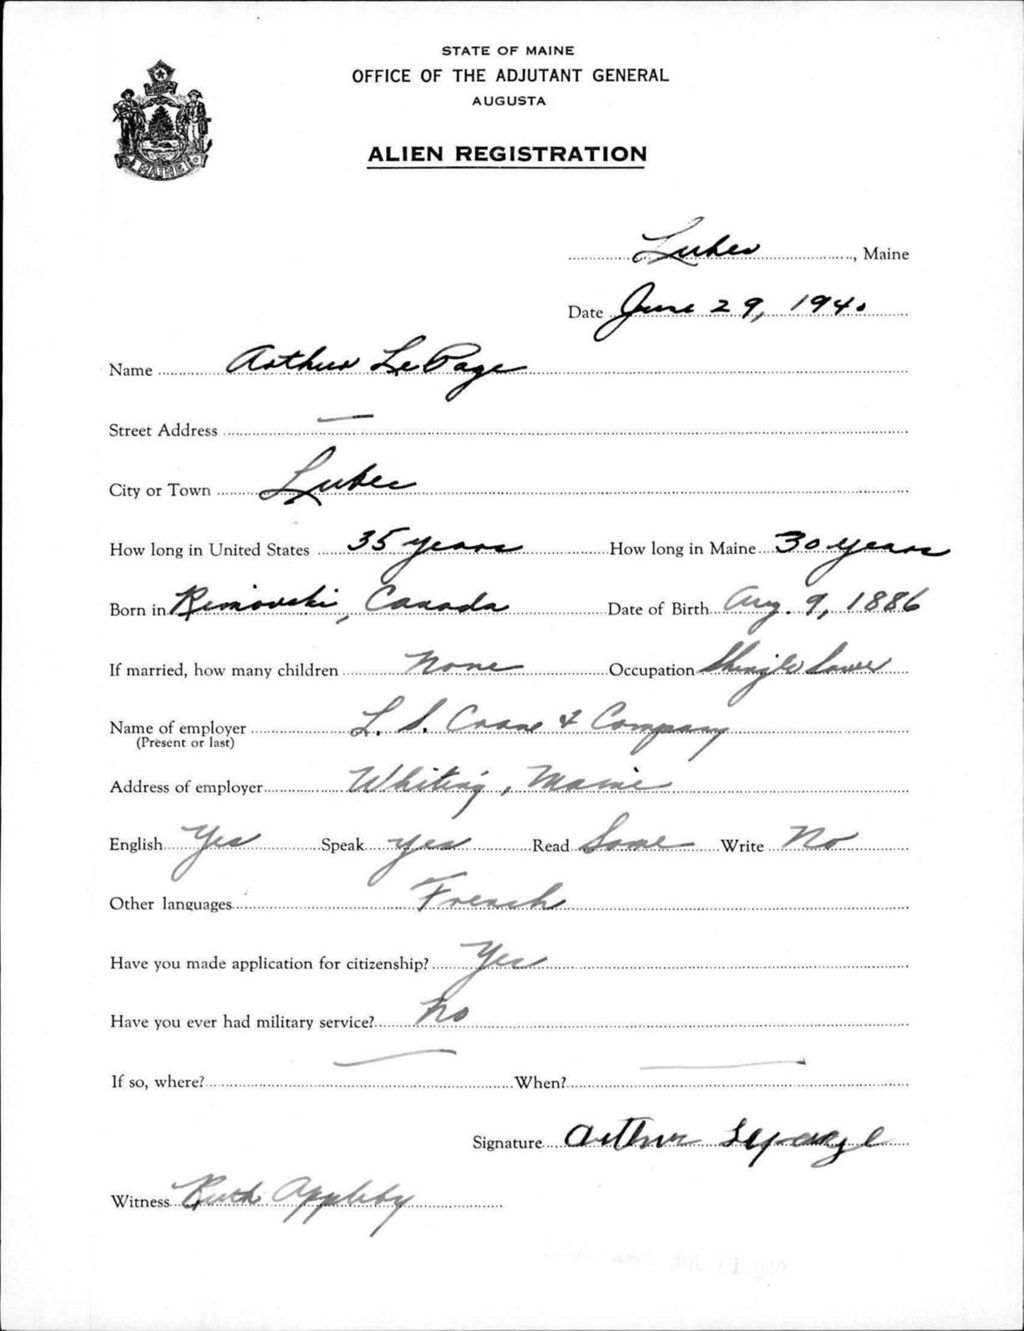 STATE OF MAINE
OFFICE OF THE ADJUTANT GENERAL
AUGUSTA
ALIEN REGISTRATION
MAINE
Lubec, Maine
Date June 29, 1940
Name Arthur LePage
Street Address —
City or Town Lubec
How long in United States 35 years How long in Maine 30 years
Born in Rimouski, Canada Date of Birth Aug. 9, 1886
If married, how many children None Occupation Shingle Sawer
Name of employer L. S. Crane & Company
(Present or last)
Address of employer Whiting, Maine
English Yes Speak yes Read Some Write No
Other languages French
Have you made application for citizenship? Yes
Have you ever had military service? No
If so, where? — When? —
Signature Arthur Lepage
Witness Ruth Appleby